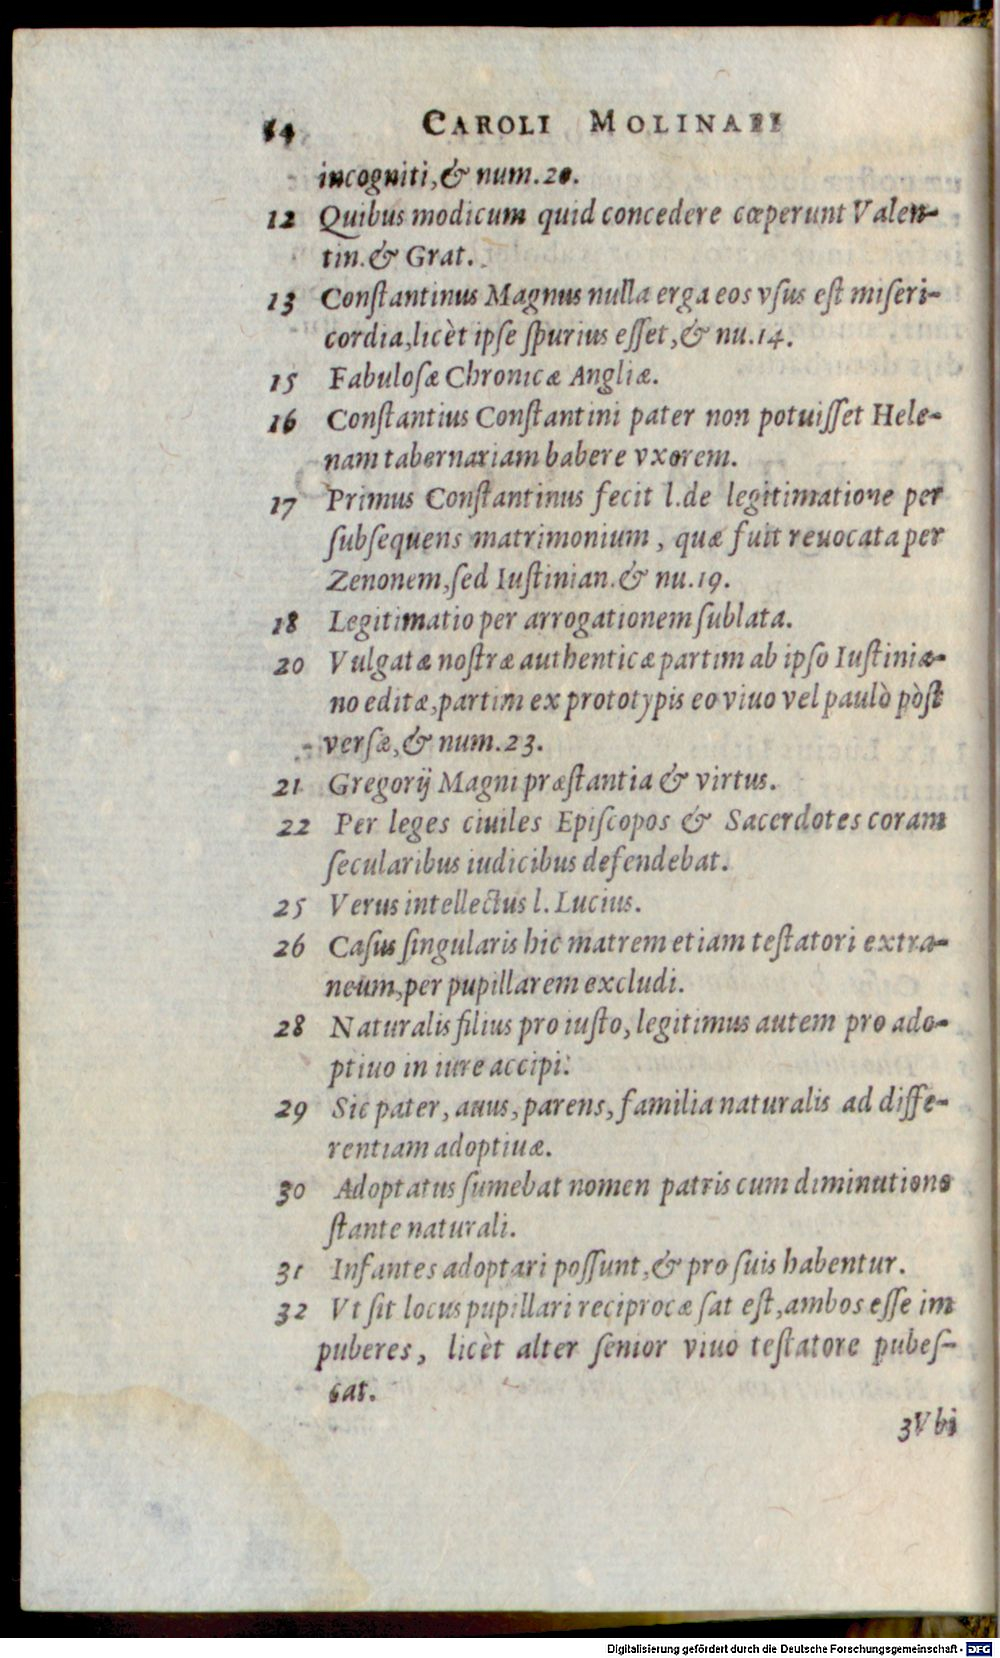 54 CAROLI MOLINAEI
incogniti, & num.20.
12 Quibus modicum quid concedere cœperunt Valen-
tin. & Grat.
13 Conſtantinus Magnus nulla erga eos vſus eſt miſeri-
cordia, licèt ipſe ſpurius eſſet, & nu.14.
15 Fabuloſæ Chronicæ Angliæ.
16 Conſtantius Conſtantini pater non potuiſſet Hele-
nam tabernariam habere vxorem.
17 Primus Conſtantinus fecit l.de legitimatione per
ſubſequens matrimonium, quæ fuit reuocata per
Zenonem, ſed Iuſtinian. & nu.19.
18 Legitimatio per arrogationem ſublata.
20 Vulgatæ noſtræ authenticæ partim ab ipſo Iuſtinia-
no editæ, partim ex prototypis eo viuo vel paulò pòſt
verſæ, & num.23.
21 Gregorij Magni præſtantia & virtus.
22 Per leges ciuiles Epiſcopos & Sacerdotes coram
ſecularibus iudicibus defendebat.
25 Verus intellectus l. Lucius.
26 Caſus ſingularis hic matrem etiam teſtatori extra-
neum, per pupillarem excludi.
28 Naturalis filius pro iuſto, legitimus autem pro ado-
ptiuo in iure accipi.
29 Sic pater, auus, parens, familia naturalis ad diffe-
rentiam adoptiuæ.
30 Adoptatus ſumebat nomen patris cum diminutione
ſtante naturali.
31 Infantes adoptari poſſunt, & pro ſuis habentur.
32 Vt ſit locus pupillari reciprocæ ſat eſt, ambos eſſe im
puberes, licèt alter ſenior viuo teſtatore pubeſ-
cat.
3Vbi
Digitalisierung gefördert durch die Deutsche Forschungsgemeinschaft - DFG